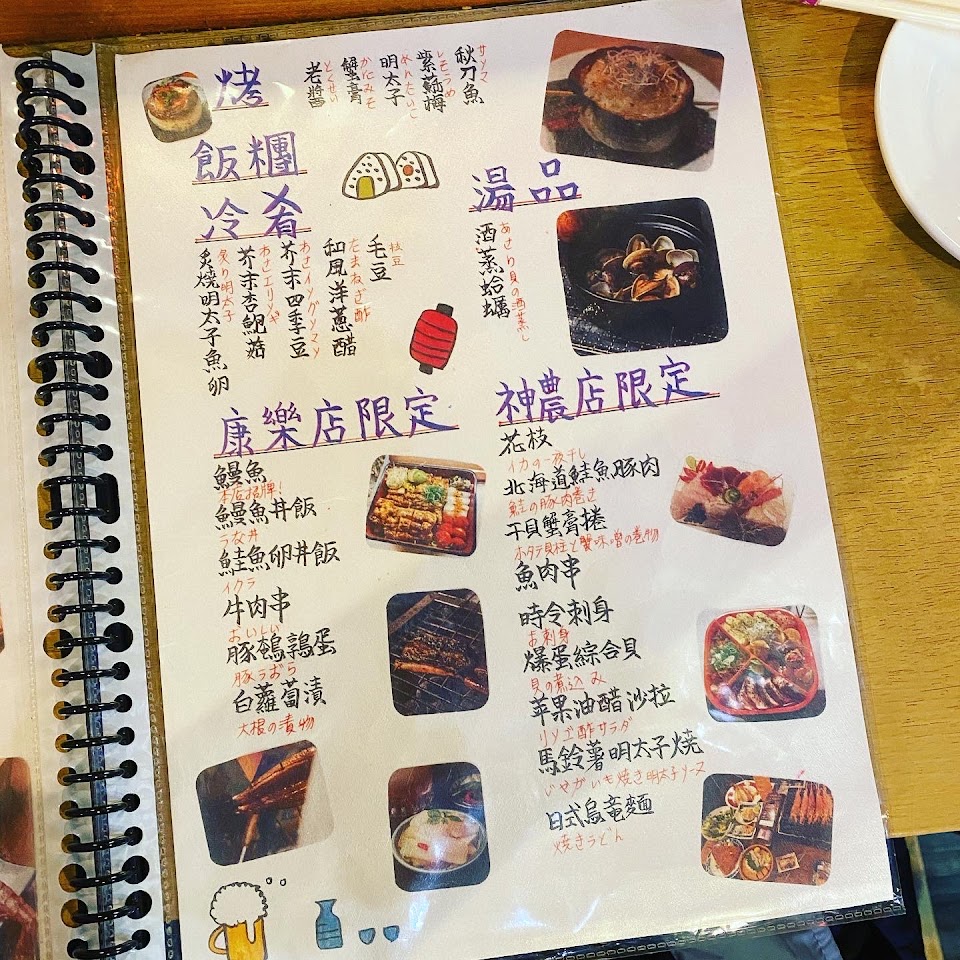 烤
飯糰
秋刀魚
サンマ
紫蘇梅
しそうめ
明太子
めんたいこ
蟹膏
かにみそ
老醬
とくせい
冷肴
毛豆
枝豆
和風洋蔥醋
たまねぎ酢
芥末四季豆
芥末杏鮑菇
炙燒明太子魚卵
炙り明太子
湯品
酒蒸蛤蠣
あさり貝の酒蒸し
康樂店限定
鰻魚
本店招牌！
鰻魚丼飯
うな丼
鮭魚卵丼飯
イクラ
牛肉串
おいしい
豚鵪鶉蛋
豚うずら
白蘿蔔漬
大根の漬物
神農店限定
花枝
イカの一夜干し
北海道鮭魚豚肉
鮭の豚肉巻き
干貝蟹膏捲
ホタテ貝柱と蟹味噌の巻物
魚肉串
時令刺身
お刺身
爆蛋綜合貝
貝の煮込み
苹果油醋沙拉
リンゴ酢サラダ
馬鈴薯明太子燒
じゃがいも焼き明太子ソース
日式烏竜麵
焼きうどん